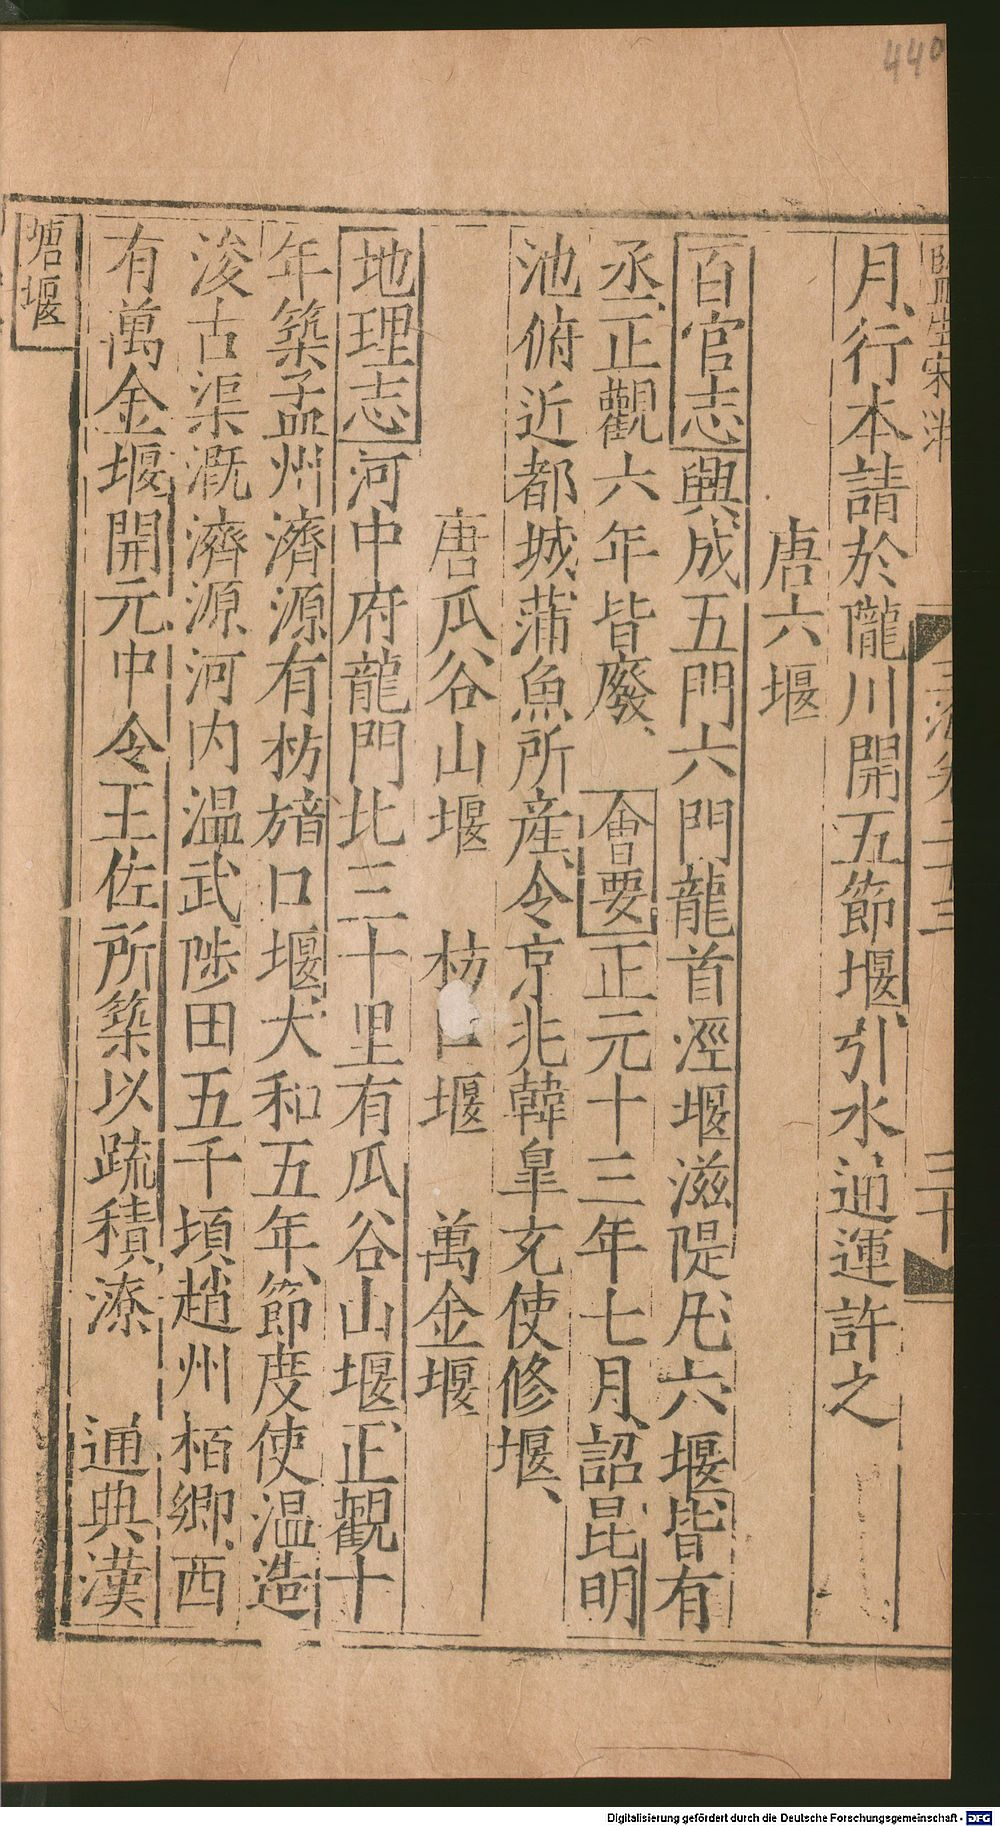 440
月行本請於隴川開五節堰引水通運許之
唐六堰
百官志興成五門六門龍首涇堰滋隄凡六堰皆有
丞正觀六年皆廢會要正元十三年七月詔昆明
池俯近都城蒲魚所産令京兆韓皐充使修堰
唐瓜谷山堰 枋口堰 萬金堰
地理志河中府龍門北三十里有瓜谷山堰正觀十
年築孟州濟源有枋口堰大和五年節度使温造
浚古渠溉濟源河内温武陟田五千頃趙州栢鄉西
有萬金堰開元中令王佐所築以疏積潦 通典漢
塘堰
Digitalisierung gefördert durch die Deutsche Forschungsgemeinschaft - DFG